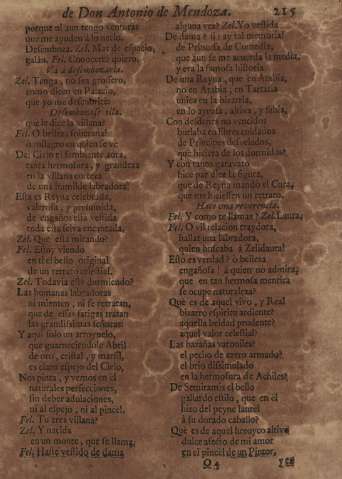 de Don Antonio de Mendoza. 215
porque al aun tengo venturas
que me ayuden a lo necio.
Desembuza. Zel. Mas de espacio,
galan. Fel. Conocerla quiero.
Va a desembozarla.
Zel. Tenga, no sea grossero,
como dicen en Palacio,
que yo me descubriré
Descubrese ella.
que le dice la villana?
Fel. O belleza soberana!
o milagro en quien se ve
De Cintia semblante aora,
tanta hermosura, y grandeza
en la villana corteza
de una humilde labradora!
Esta es Reyna celebrada,
valerosa, y presumida,
de engaños esta vestida
toda esta selva encantada.
Zel. Que está mirando?
Fel. Estoy viendo
en el bello original
de un retrato celestial.
Zel. Todavia està durmiendo?
Las humanas labradoras
ni mienten, ni se retratan,
que de essas fatigas tratan
las grandissimas señoras
Y aqui solo un arroyuelo,
que guarneciendole Abril
de oro, cristal, y marfil,
es claro espejo del Cielo,
Nos pinta, y vemos en el
naturales perfecciones,
sin deber adulaciones,
ni al espejo, ni al pincel.
Fel. Tu eres villana?
Zel. Y nacida
en un monte, que se llama,
Fel. Haste vestido de dama
alguna vez? Zel. Yo vestida
De dama? si: ay tal memoria!
de Princesa de Comedia,
que aun se me acuerda la media,
y era la famosa historia
De una Reyna, que en Arabia,
no en Arabia, en Tartaria
unica en la bizarria,
en lo ayrosa, altiva, y sabia,
Con desdenes no vencidos
burlaba en libres cuidados
de Principes desvelados,
que hiciera de los dormidos?
Y con tanto garavato
hice por dicha la figura,
que de Reyna mandò el Cura,
que me hiciessen un retrato.
Hace una reverencia.
Fel. Y como te llamas? Zel. Laura,
Fel. O vil relacion traydora,
hallar una labradora,
quien buscaba a Zelidaura!
Esto es verdad? ò belleza
engañosa! à quien no admira,
que en tan hermosa mentira
se ocupe naturaleza?
Què es de aquel vivo, y Real
bizarro espiritu ardiente?
aquella beldad prudente?
aquel valor celestial?
Las hazañas varoniles?
el pecho de azero armado?
el brio disimulado
en la hermosura de Achiles?
De Semiramis el bello
gallardo estilo, que en el
hizo del peyne laurel
à su dorado caballo?
Què es de aquel heroyco altivo
dulce afecto de mi amor
en el pincel de un Pintor,
Q4 yen